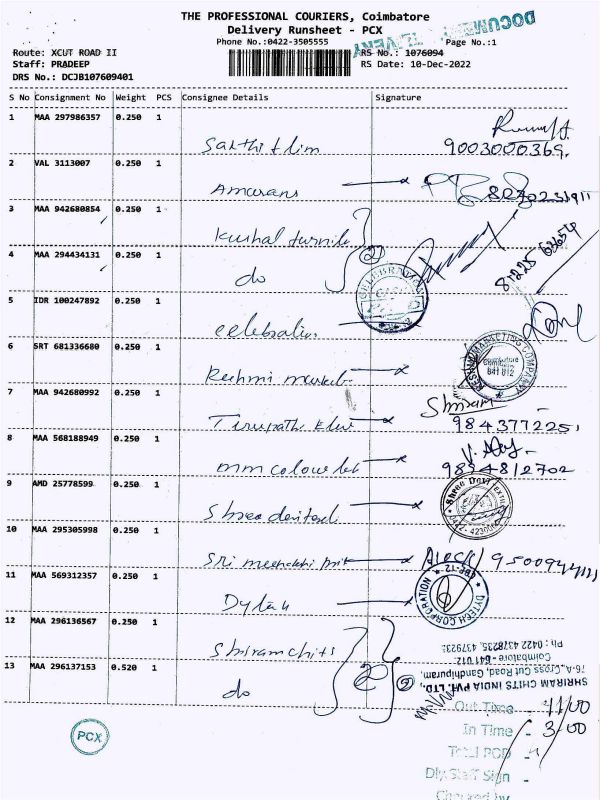 THE PROFESSIONAL COURIERS, Coimbatore
Delivery Runsheet - PCX
Phone No.:0422-3505555
Page No.:1
DOCUMENT
DELIVERY
Route: XCUT ROAD II
RS No.: 1076094
Staff: PRADEEP
RS Date: 10-Dec-2022
DRS No.: DCJB107609401
S No Consignment No Weight PCS Consignee Details Signature
1 MAA 297986357 0.250 1
Sakthi flim 9003000369.
2 VAL 3113007 0.250 1
Amarans
3 MAA 942680854 0.250 1
Kushal
4 MAA 294434131 0.250 1
do 2
81225 62654
5 IDR 100247892 0.250 1
celebration CELEBRATION
6 SRT 681336680 0.250 1
Reshmi market RESHMI MARKETING COMPANY
Coimbatore
641 012
7 MAA 942680992 0.250 1
Shriram
Tirupathi 984377225
8 MAA 568188949 0.250 1
mm colour lab 9894812702
9 AMD 25778599 0.250 1
Shree devi text Shree Devi
10 MAA 295305998 0.250 1
Sri meenakshi
11 MAA 569312357 0.250 1
Dytech DYTECH CORPORATION
CBE-12
12 MAA 296136567 0.250 1
Shriram chits
13 MAA 296137153 0.520 1
do 2
SHRIRAM CHITS INDIA PVT. LTD.,
76-A, Cross Cut Road, Gandhipuram,
Coimbatore - 641 012
Ph : 0422 4378235,
Out Time - 11/00
In Time - 3-00
Total POD -
Dly Staff Sign -
Checked by
PCX